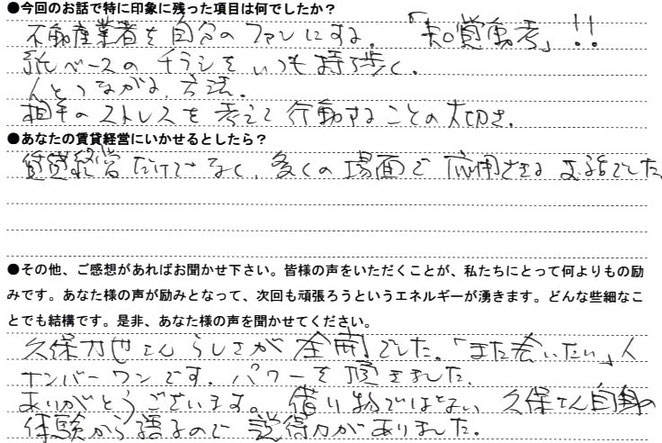 ●今回のお話で特に印象に残った項目は何でしたか？
不動産業者を自分のファンにする。「知覚動考」!!
紙ベースのチラシをいつも持ち歩く。
人とつながる方法。
相手のストレスを考えて行動することの大切さ。
●あなたの賃貸経営にいかせるとしたら？
賃貸経営だけでなく、多くの場面で応用できるお話でした
●その他、ご感想があればお聞かせ下さい。皆様の声をいただくことが、私たちにとって何よりもの励
みです。あなた様の声が励みとなって、次回も頑張ろうというエネルギーが湧きます。どんな些細なこ
とでも結構です。是非、あなた様の声を聞かせてください。
久保力也さんらしさが全開でした。「また会いたい」人
ナンバーワンです。パワーを頂きました。
ありがとうございます。借り物ではない、久保さん自身の
体験から語るので説得力がありました。